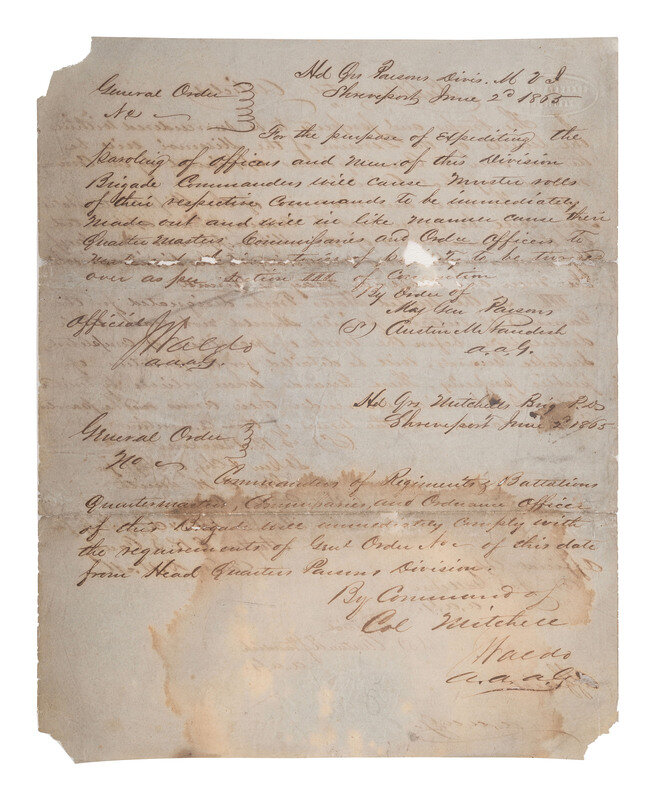 Hd Qrs Parsons Divis. M V I
General Order
Shreveport June 2d 1865
No
For the purpose of Expediting the
paroling of Officers and men of this Division
Brigade Commanders will cause Muster rolls
of their respective Commands to be immediately
made out and will in like manner cause their
Quartermasters, Commissaries and Ordce Officers to
to be turned
over as per Section of Convention
By Order of
Maj Gen Parsons
Official
(S) Austin M. Standish
J Waldo
a.a.G.
a.a.a.G.
Hd Qrs Mitchells Brig P.D
Shreveport June 2d 1865
General Order
No
Commanders of Regiments & Battalions
Quartermasters, Commissaries, and Ordnance Officers
of this Brigade will immediately comply with
the requirements of Genl Order No of this date
from Head Quarters Parsons Division.
By Command of
Col Mitchell
J Waldo
a.a.a.G.